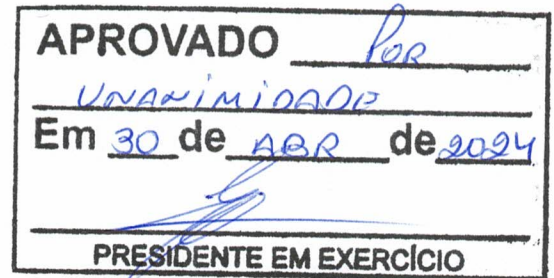 APROVADO POR
UNANIMIDADE
Em 30 de ABR de 2024
PRESIDENTE EM EXERCÍCIO